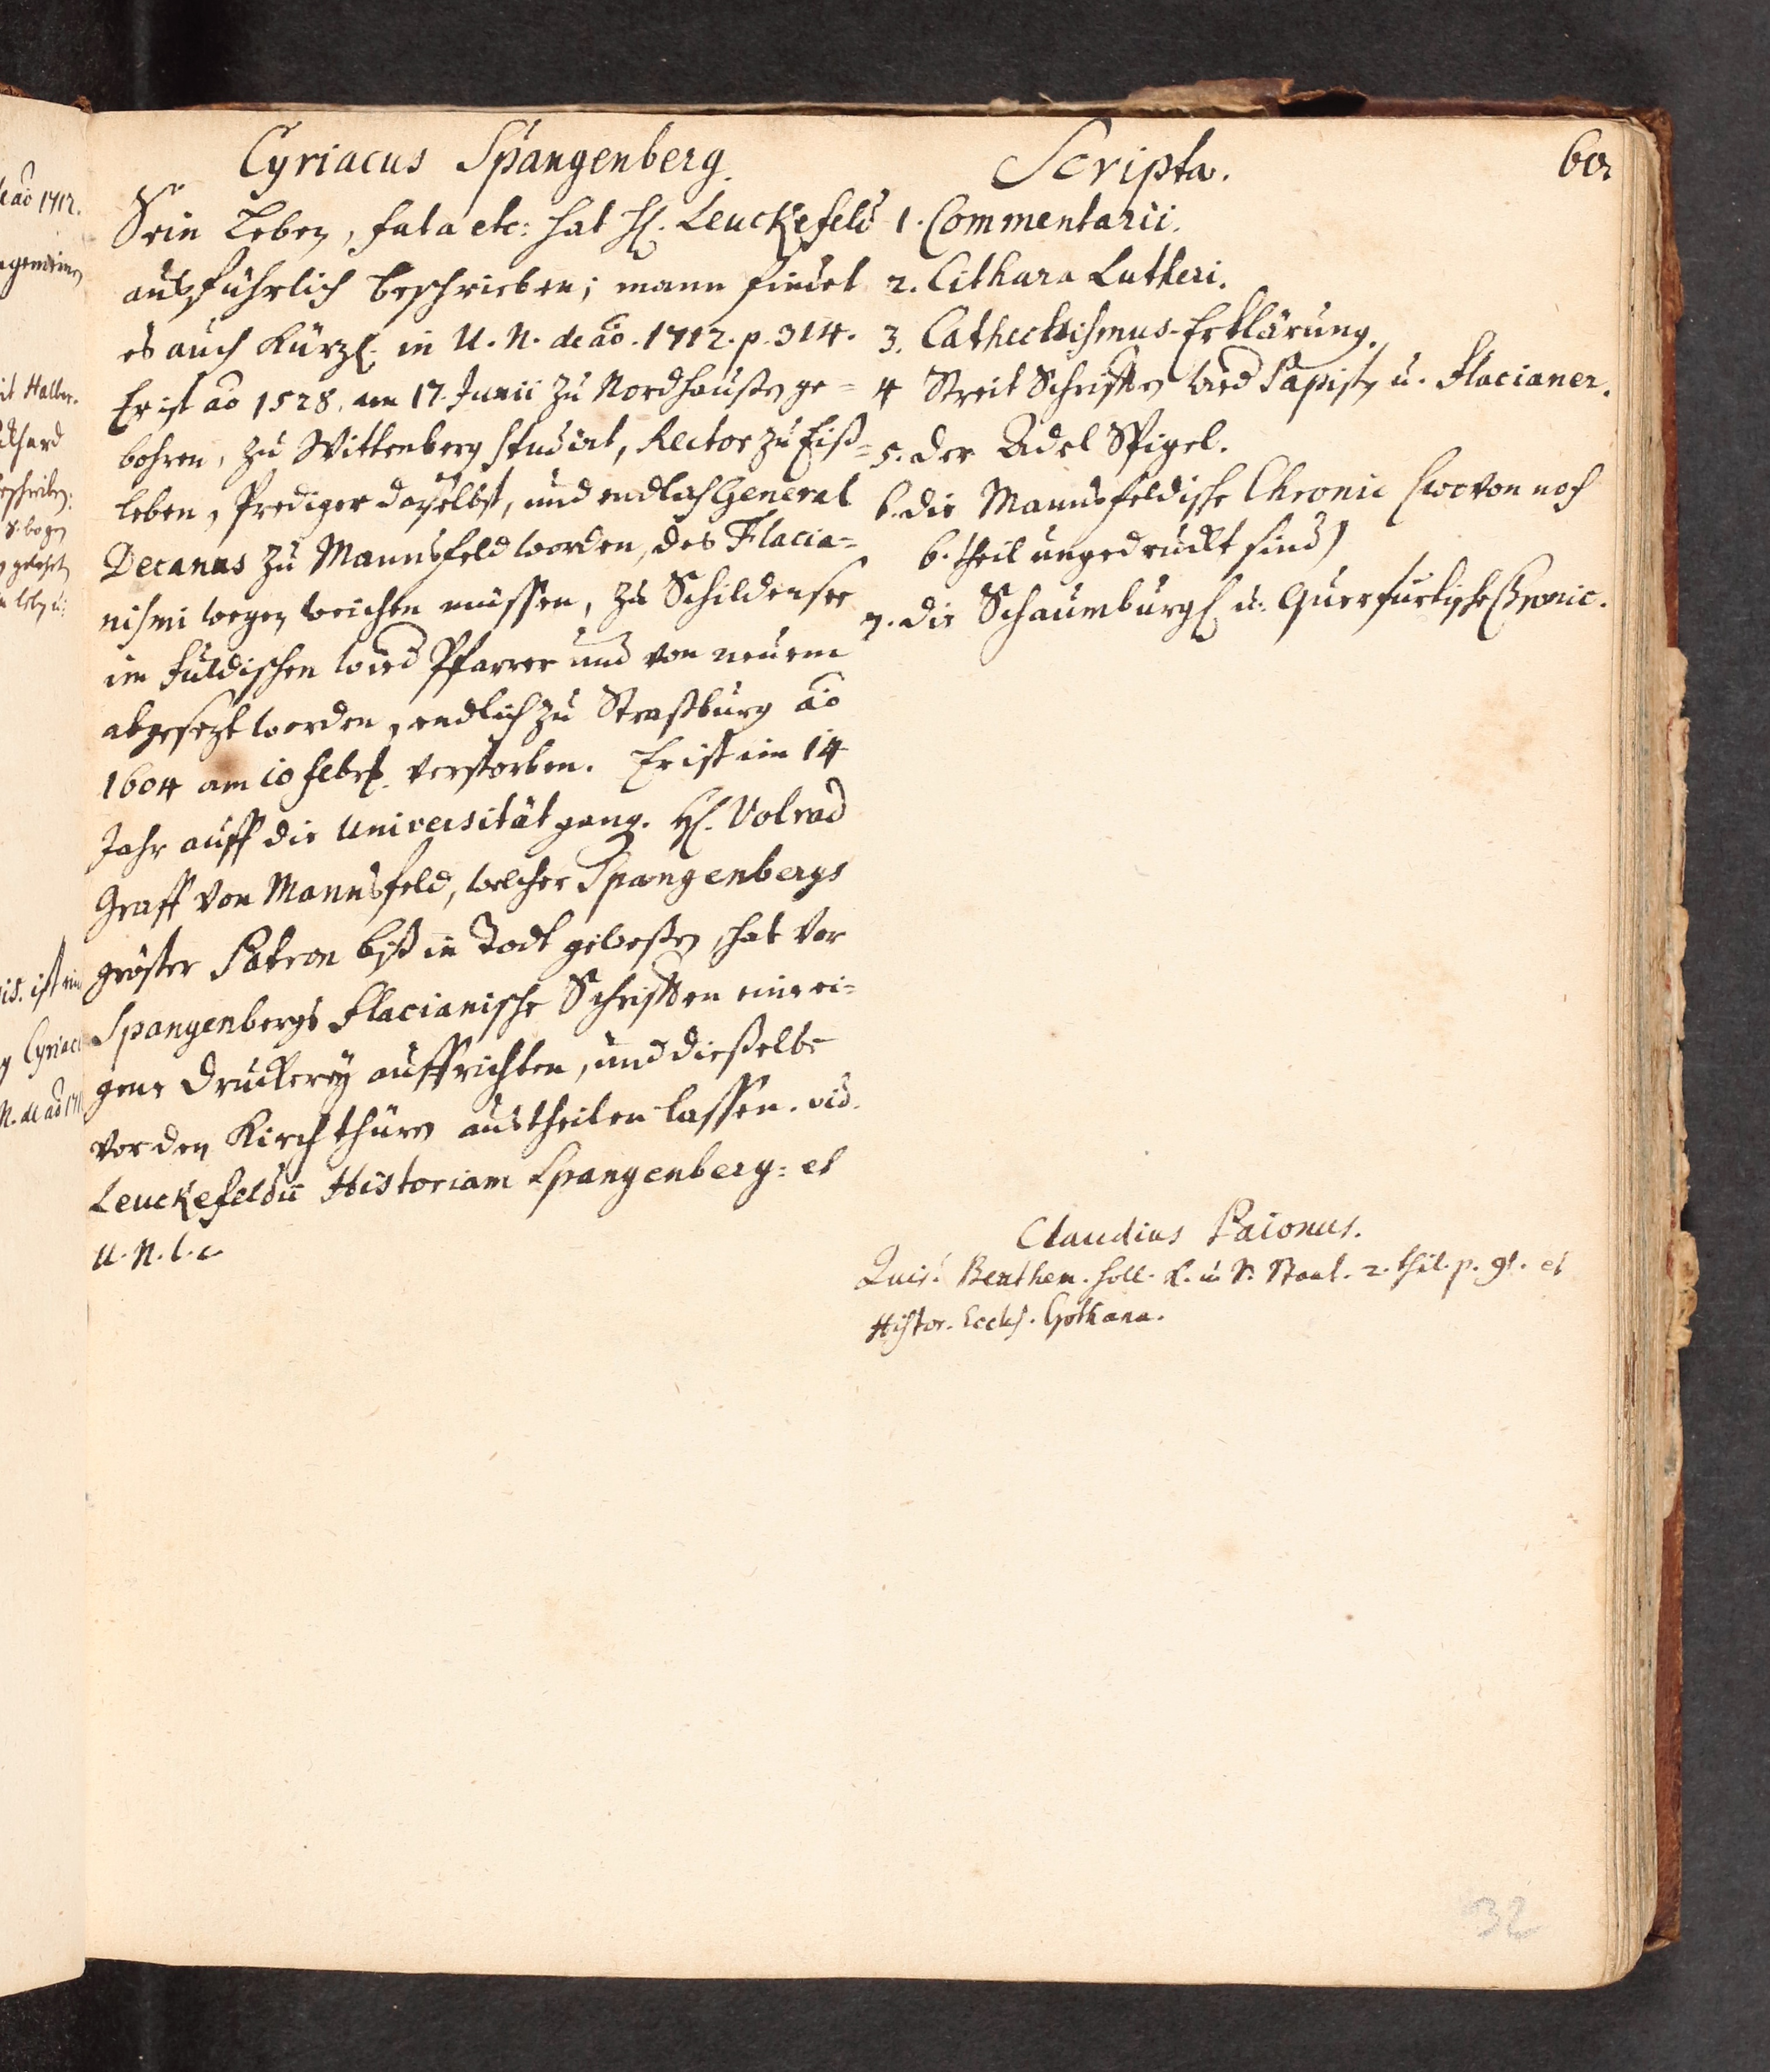 Cyriacus Spangenberg.
Sein Leben, fata etc: hat H. Leuckefeld
ausführlich beschrieben; mann findet
es auch Kürzl. in U. N. de aō. 1712. p. 314.
Er ist aō 1528. am 17. Junii zu Nordhaußen ge=
bohren, zu Wittenberg studirt, Rector zu Eiß=
leben, Prediger daselbst, und endlich General
Decanus zu Mannsfeld worden, des Flacia=
nismi wegen weichen müssen, zu Schildensee
im Fuldischen wird Pfarrer und von neuem
abgesezt worden, endlich zu Straßburg aō
1604 am 10 Febr. verstorben. Er ist im 14
Jahr auff die Universität gang. H. Volrad
Graff von Mannsfeld, welcher Spangenbergs
gröster Patron biß in Todt geweßen, hat vor
Spangenbergs Flacianische Schrifften eine ei=
gene Druckerey auffrichten, und dieselbe
vor den Kirchthüren austheilen lassen. vid.
Leuckefeldii Historiam Spangenberg: et
U. N. l. c.
Scripta.
60
1. Commentarii.
2. Cithara Lutheri.
3. Cathechismus-Erklärung.
4 Streit Schrifften wid Papisten u. Flacianer.
5. Der Adel Spigel.
6. die Mannsfeldische Chronic (wovon noch
6. theil ungedruckt sind)
7. die Schaumburgl u. Querfurtische Chronic.
Claudius Paionus.
Benthem. Holl. K. u. S. Staat. 2. theil. p. 91. et
Histor. Eccles. Gothana.
de aō 1712.
it Halber.
Cyriaci
N. de aō 171
32